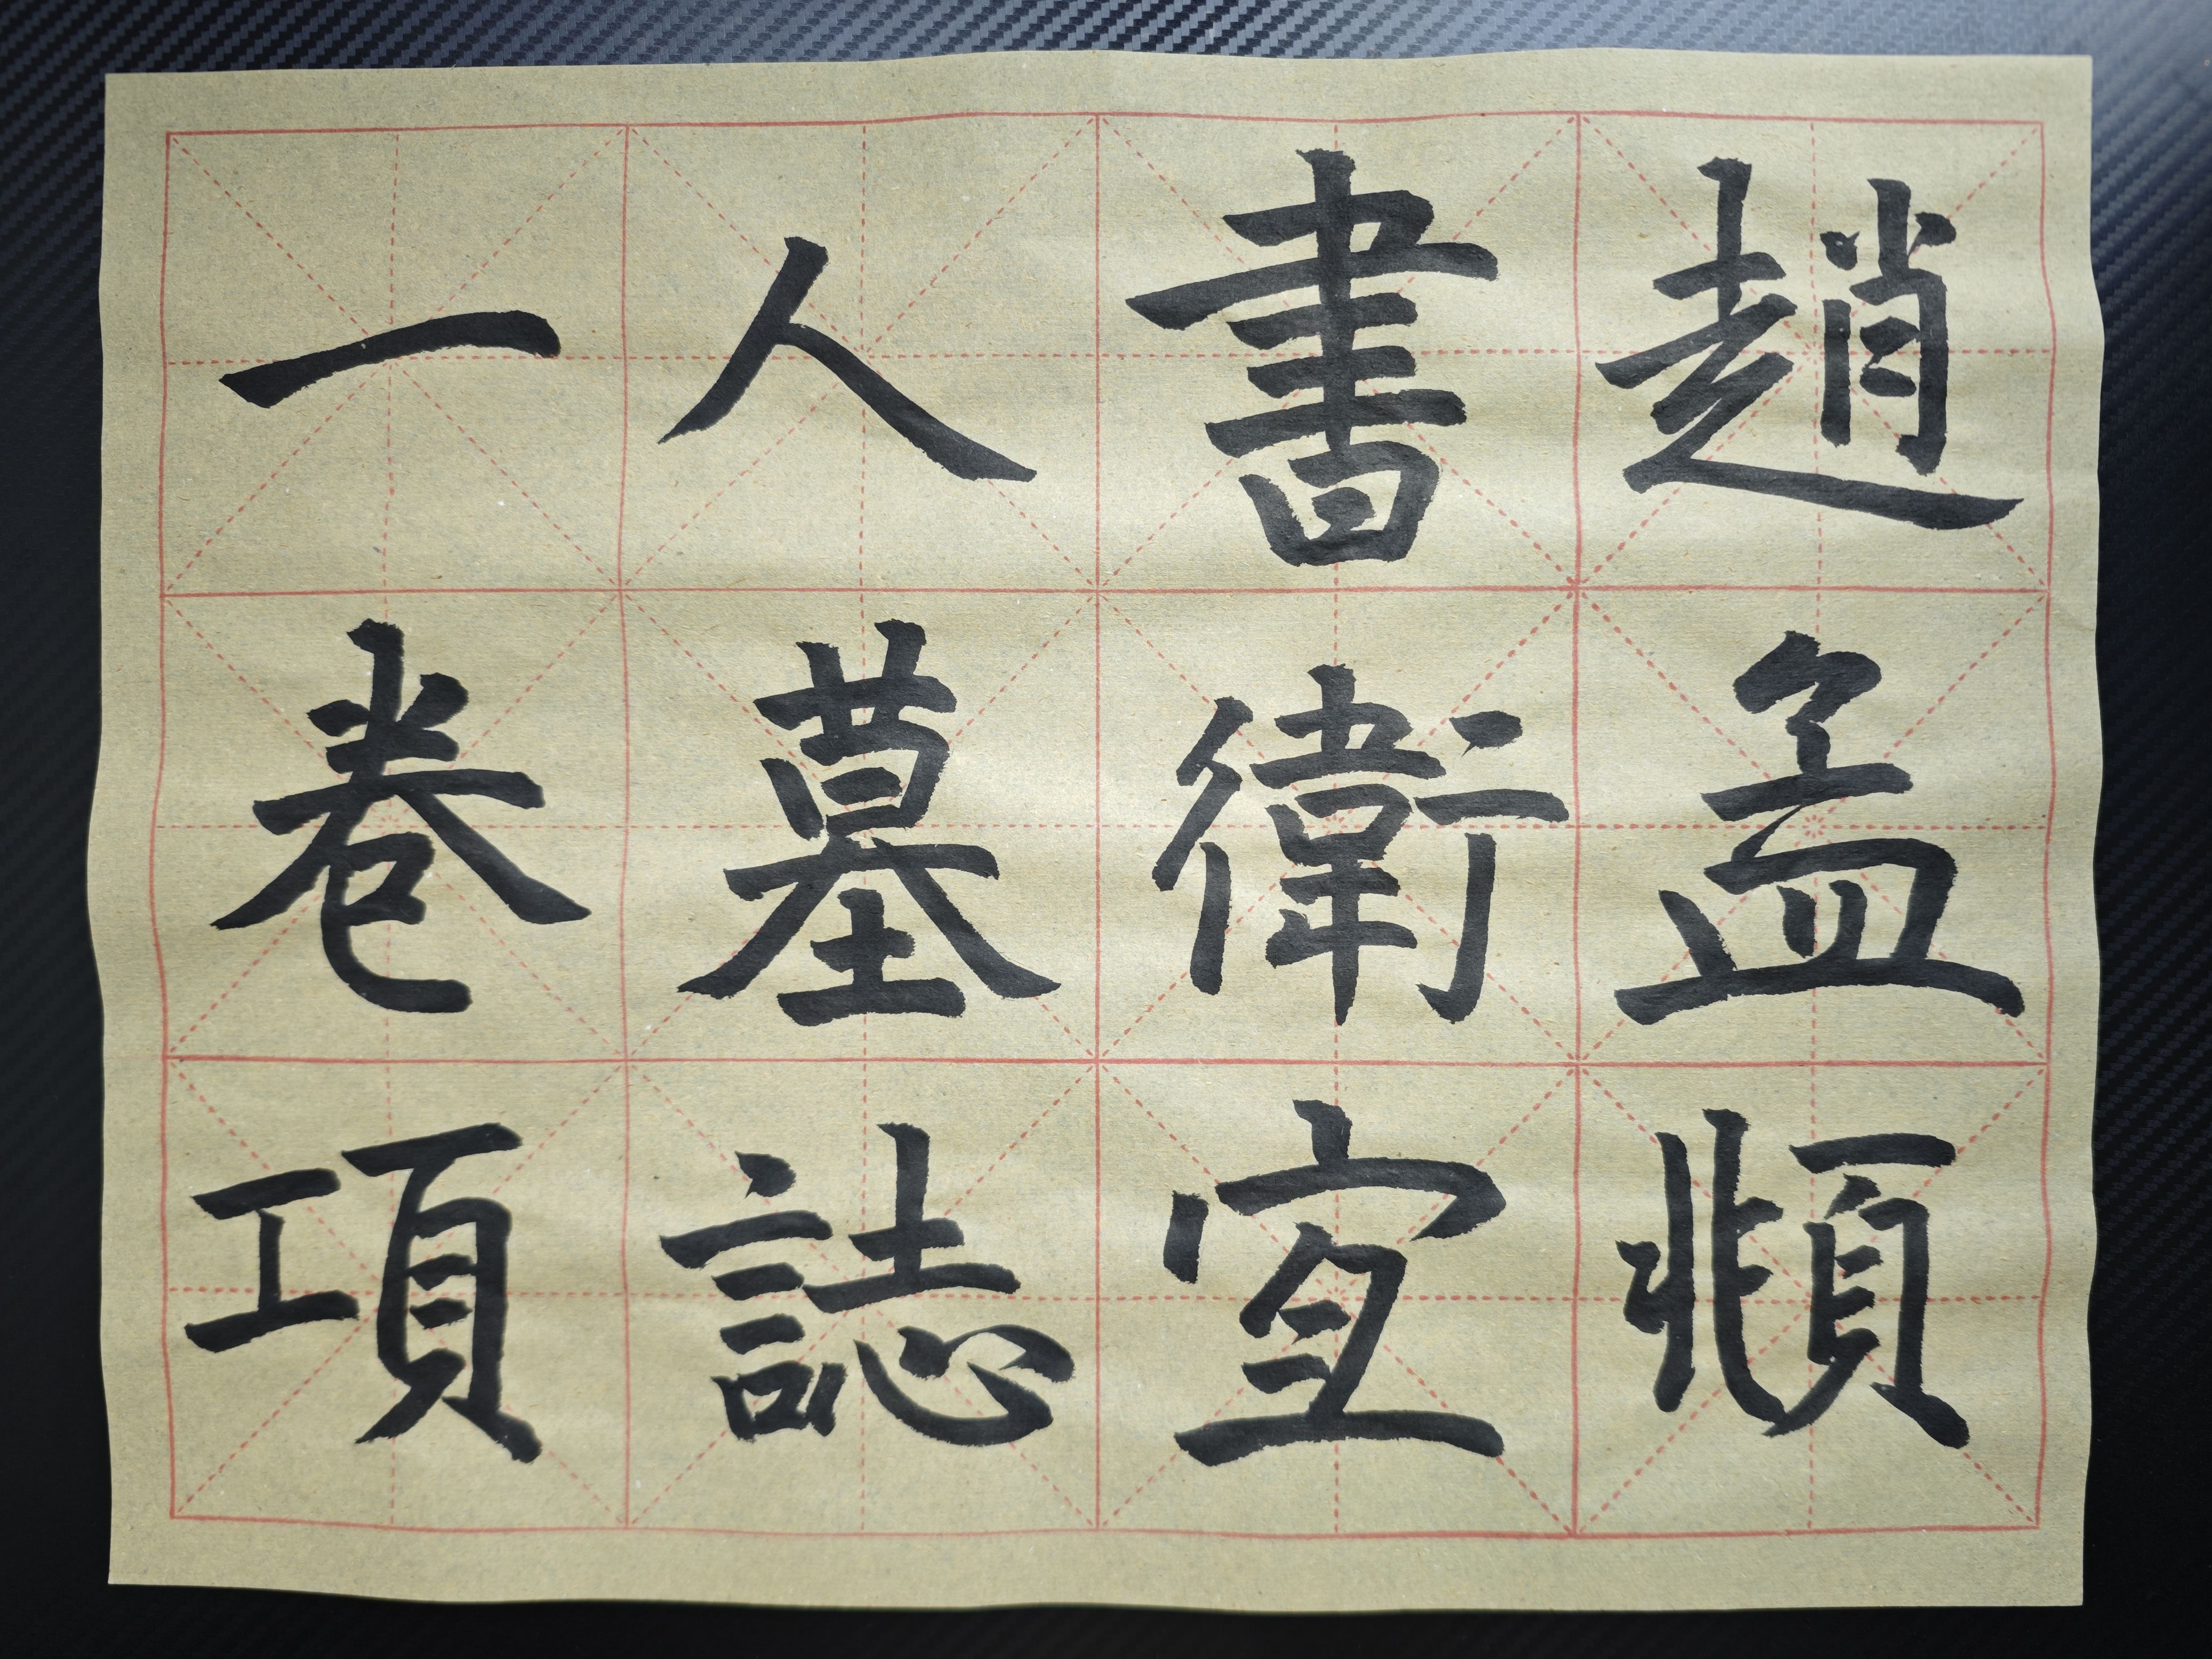 趙孟頫
書衛宜
人墓誌
一卷項